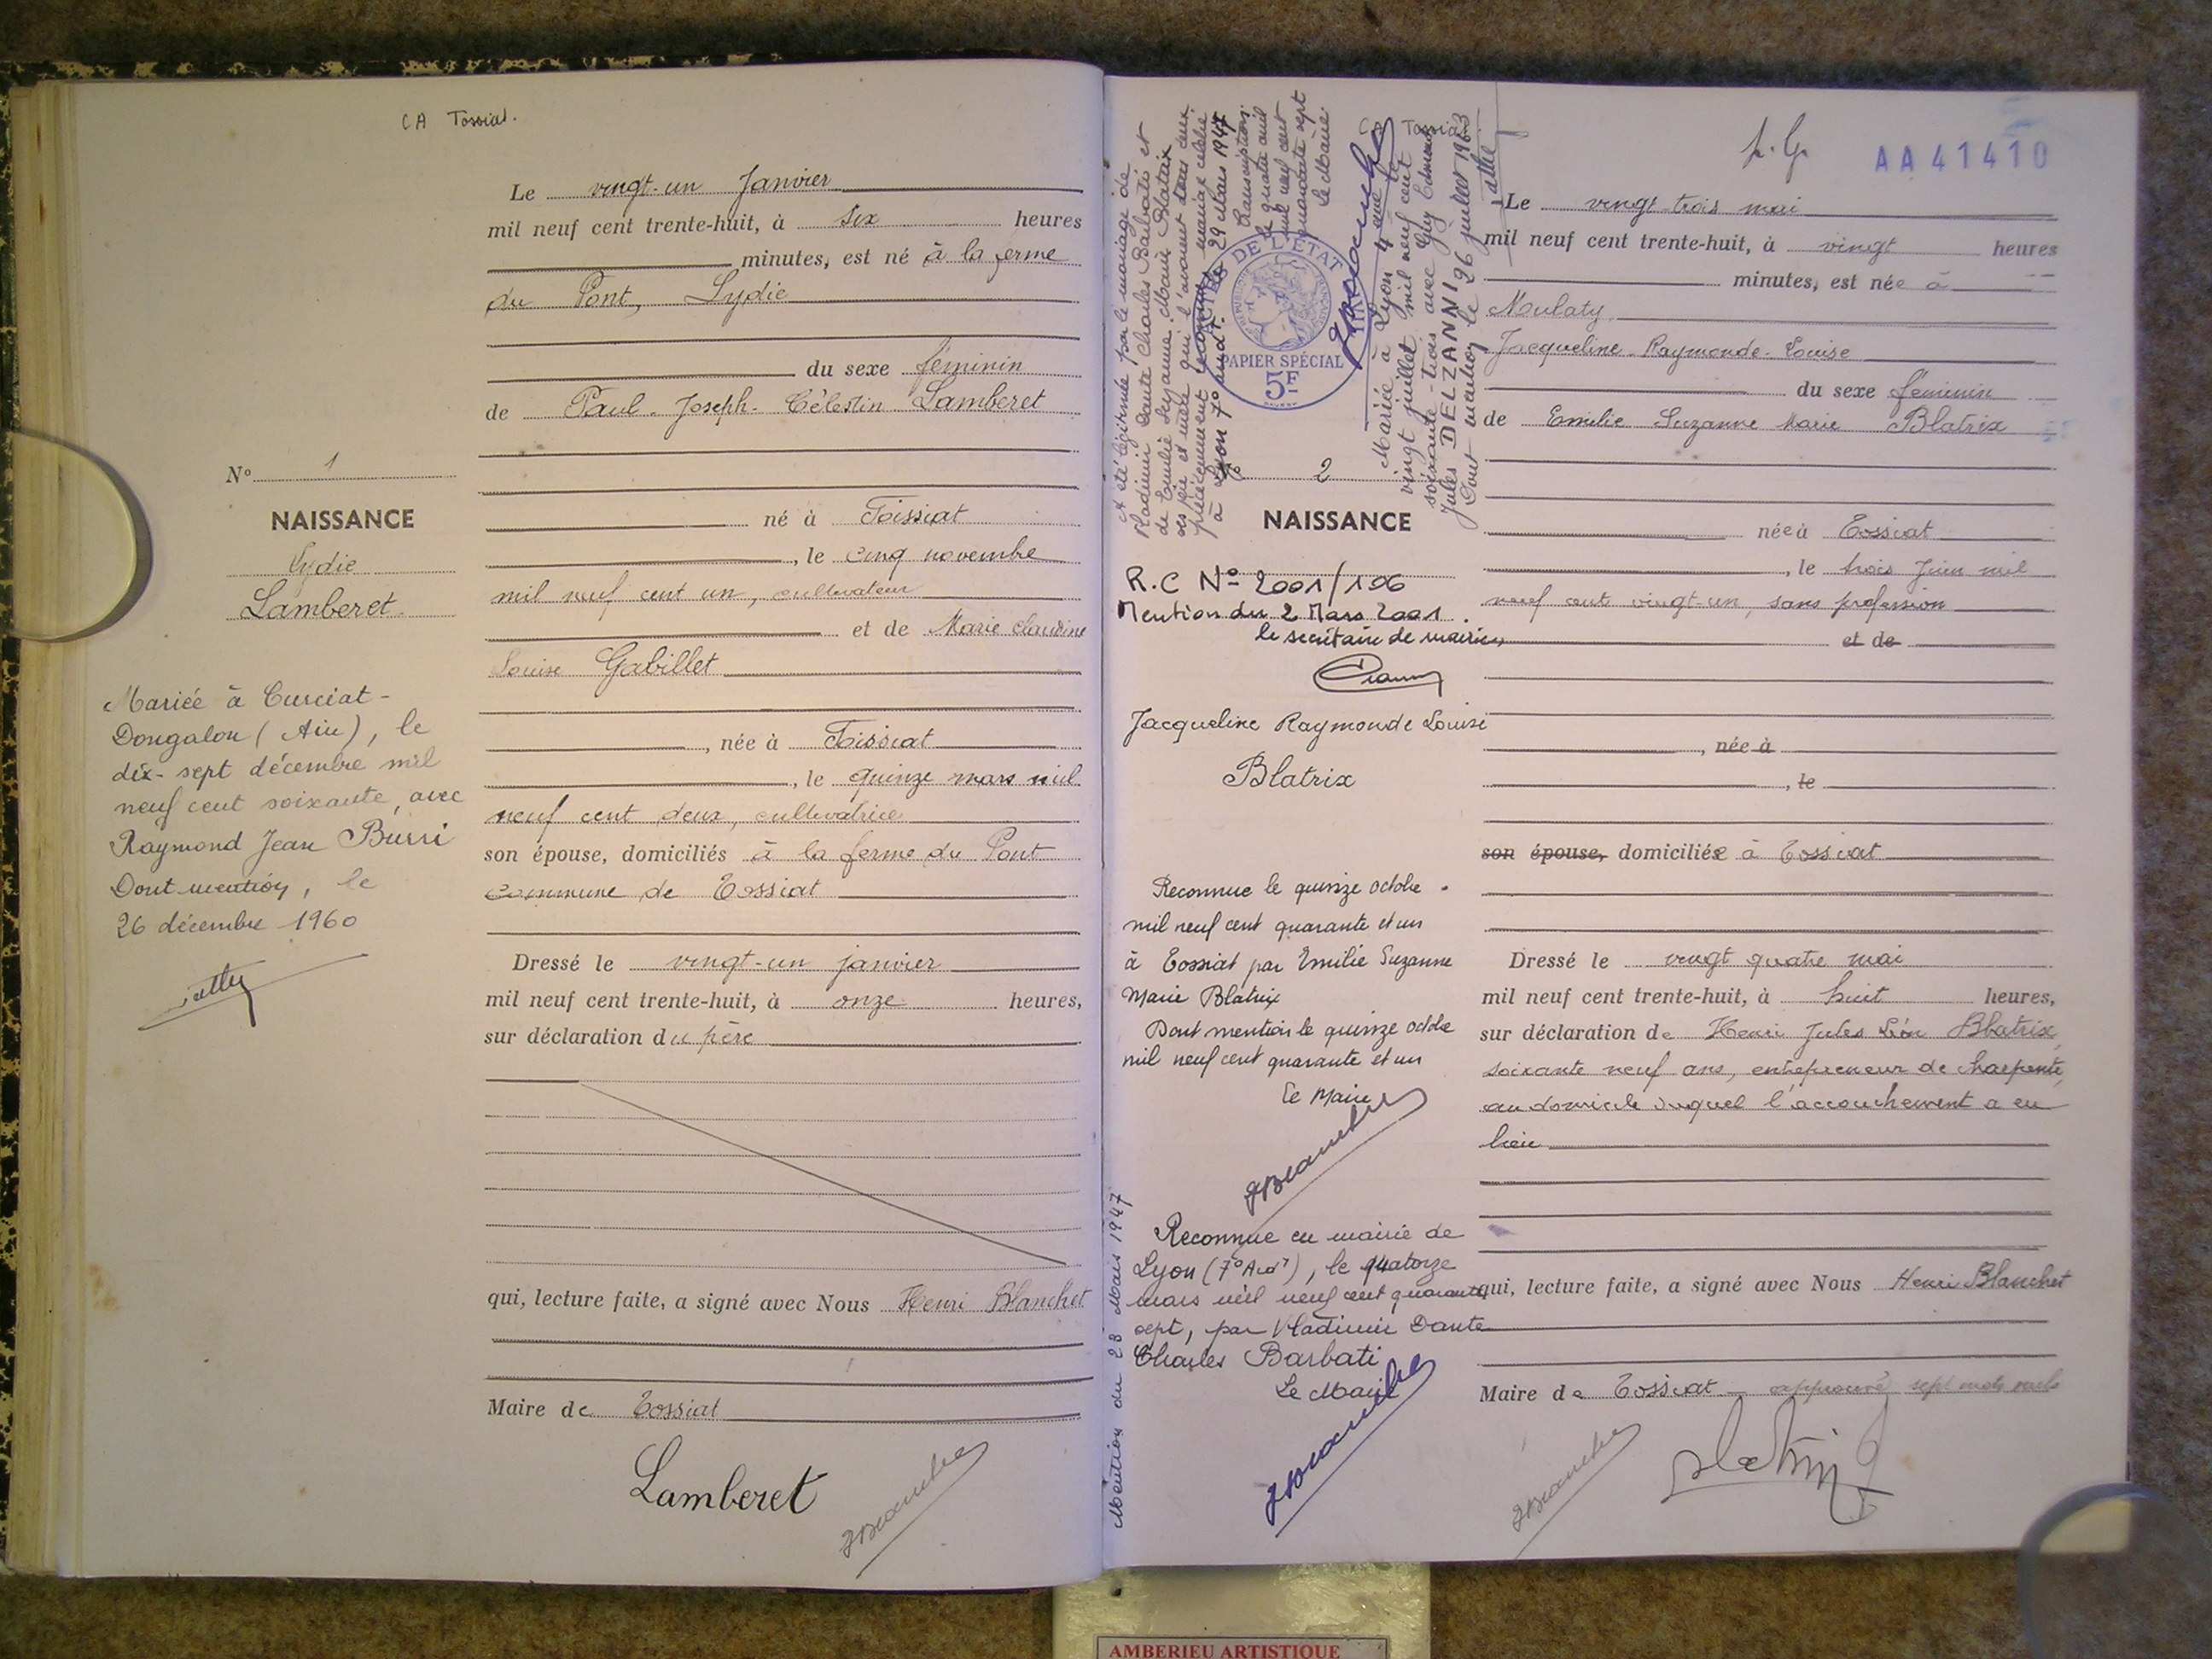 CA Tossiat.
Le vingt-un Janvier
mil neuf cent trente-huit, à six heures
minutes, est né à la ferme
du Pont, Lydie
du sexe féminin
de Paul-Joseph-Célestin Lamberet
né à Tossiat
, le cinq novembre
mil neuf cent un, cultivateur
et de Marie Claudine
Louise Gabillet
, née à Tossiat
, le quinze mars mil
neuf cent deux, cultivatrice
son épouse, domiciliés à la ferme du Pont
commune de Tossiat
Dressé le vingt-un janvier
mil neuf cent trente-huit, à onze heures,
sur déclaration du père
qui, lecture faite, a signé avec Nous Henri Blanchet
Maire de Tossiat
Lamberet
HBlanchet
N° 1
NAISSANCE
Lydie
Lamberet
Mariée à Curciat-
Dongalon (Ain), le
dix-sept décembre mil
neuf cent soixante, avec
Raymond Jean Burri
Dont mention, le
26 décembre 1960
A été légitimée par le mariage de
Vladimir Dante Charles Barbati et
de Emilie Suzanne Marie Blatrix
ses père et mère qui l'avaient tous deux
précédemment reconnue, mariage célébré
à Lyon 7° arrdt. le 29 Mars 1947
Transcription
le quatre avril
mil neuf cent
quarante sept
Le Maire
HBlanchet
DE L'ETAT
PAPIER SPÉCIAL
5F
CA Tossiat
Mariée à Lyon 4eme le
vingt juillet mil neuf cent
soixante-trois avec Guy Edmond
Jules DELZANNI
Dont mention le 26 juillet 1963
N° 2
NAISSANCE
R.C N° 2001/196
Mention du 2 Mars 2001.
le secrétaire de mairie,
Jacqueline Raymonde Louise
Blatrix
Reconnue le quinze octobre
mil neuf cent quarante et un
à Tossiat par Emilie Suzanne
Marie Blatrix
Dont mention le quinze octobre
mil neuf cent quarante et un
Le Maire
HBlanchet
Reconnue en mairie de
Lyon (7° Arrdt), le quatorze
mars mil neuf cent quarante
sept, par Vladimir Dante
Charles Barbati
Le Maire
HBlanchet
Mention du 28 Mars 1947
AA41410
Le vingt-trois mai
mil neuf cent trente-huit, à vingt heures
minutes, est née à
Mulaty
Jacqueline-Raymonde-Louise
du sexe féminin
de Emilie Suzanne Marie Blatrix
née à Tossiat
, le trois Juin mil
neuf cent vingt-un, sans profession
et de
, née à
, le
son épouse, domiciliée à Tossiat
Dressé le vingt quatre mai
mil neuf cent trente-huit, à huit heures,
sur déclaration de Henri Jules Léon Blatrix,
soixante neuf ans, entrepreneur de charpente,
au domicile duquel l'accouchement a eu
lieu
qui, lecture faite, a signé avec Nous Henri Blanchet
Maire de Tossiat approuvé sept mots nuls
HBlanchet
Blatrix
AMBERIEU ARTISTIQUE